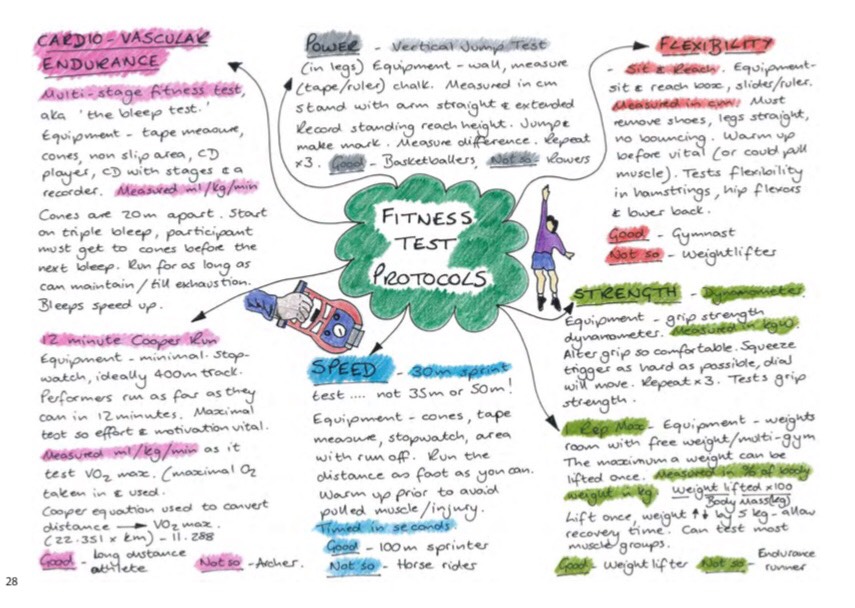 CARDIO-VASCULAR
ENDURANCE
Multi-stage fitness test,
aka 'the bleep test.'
Equipment - tape measure,
cones, non slip area, CD
player, CD with stages & a
recorder. Measured ml/kg/min
Cones are 20m apart. Start
on triple bleep, participant
must get to cones before the
next bleep. Run for as long as
can maintain/till exhaustion.
Bleeps speed up.
12 minute Cooper Run
Equipment - minimal. Stop-
watch, ideally 400m track.
Performers run as far as they
can in 12 minutes. Maximal
test so effort & motivation vital.
Measured ml/kg/min as it
test VO2 max. (maximal O2
taken in & used.
Cooper equation used to convert
distance → VO2 max.
(22.351 x km) - 11.288
Good - long distance
athlete
Not so - Archer.
POWER - Vertical Jump Test
(in legs) Equipment - wall, measure
(tape/ruler) chalk. Measured in cm
stand with arm straight & extended
Record standing reach height. Jump &
make mark. Measure difference. Repeat
x3. Good - Basketballers, Not so - Rowers
FITNESS
TEST
PROTOCOLS
SPEED - 30m sprint
test .... not 35m or 50m!
Equipment - cones, tape
measure, stopwatch, area
with run off. Run the
distance as fast as you can.
Warm up prior to avoid
pulled muscle/injury.
Timed in seconds
Good - 100m sprinter
Not so - Horse riders
FLEXIBILITY
- Sit & Reach. Equipment-
sit & reach box, slider/ruler.
Measured in cm. Must
remove shoes, legs straight,
no bouncing. Warm up
before vital (or could pull
muscle). Tests flexibility
in hamstrings, hip flexors
& lower back.
Good - Gymnast
Not so - Weightlifter
STRENGTH - Dynamometer.
Equipment - grip strength
dynamometer. Measured in kgw.
Alter grip so comfortable. Squeeze
trigger as hard as possible, dial
will move. Repeat x3. Tests grip
strength.
1 Rep Max - Equipment - weights
room with free weight/multi-gym
The maximum a weight can be
lifted once. Measured in % of body
weight in kg Weight lifted x100
Body Mass(kg)
Lift once, weight ↑↓ by 5kg - allow
recovery time. Can test most
muscle groups.
Good - Weight lifter Not so - Endurance
runner
28